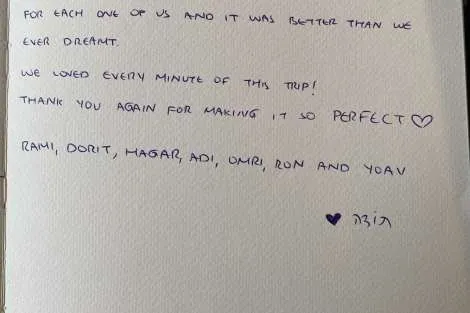 FOR EACH ONE OF US AND IT WAS BETTER THAN WE
EVER DREAMT.
WE LOVED EVERY MINUTE OF THIS TRIP!
THANK YOU AGAIN FOR MAKING IT SO PERFECT ♡
RAMI, DORIT, HAGAR, ADI, OMRI, RON AND YOAV
תודה ♥